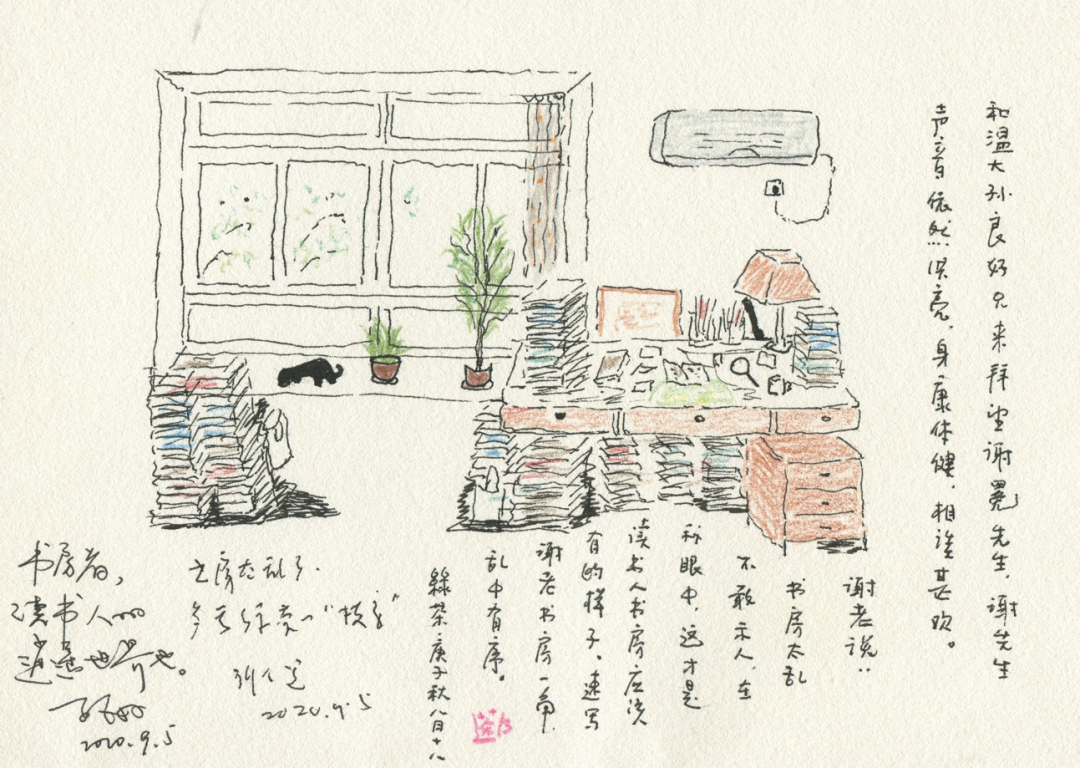 和温大孙良好兄来拜望谢冕先生，谢先生
声音依然洪亮，身康体健，相谈甚欢。
谢老说：
书房太乱
不敢示人，在
我眼中，这才是
读书人书房应该
有的样子，速写
谢老书房一角，
乱中有序。
綠茶庚子秋八月十八
书房太乱了.
多亏绿茶
2020.9.5
书房者，
读书人的
逍遥世界也。
2020.9.5